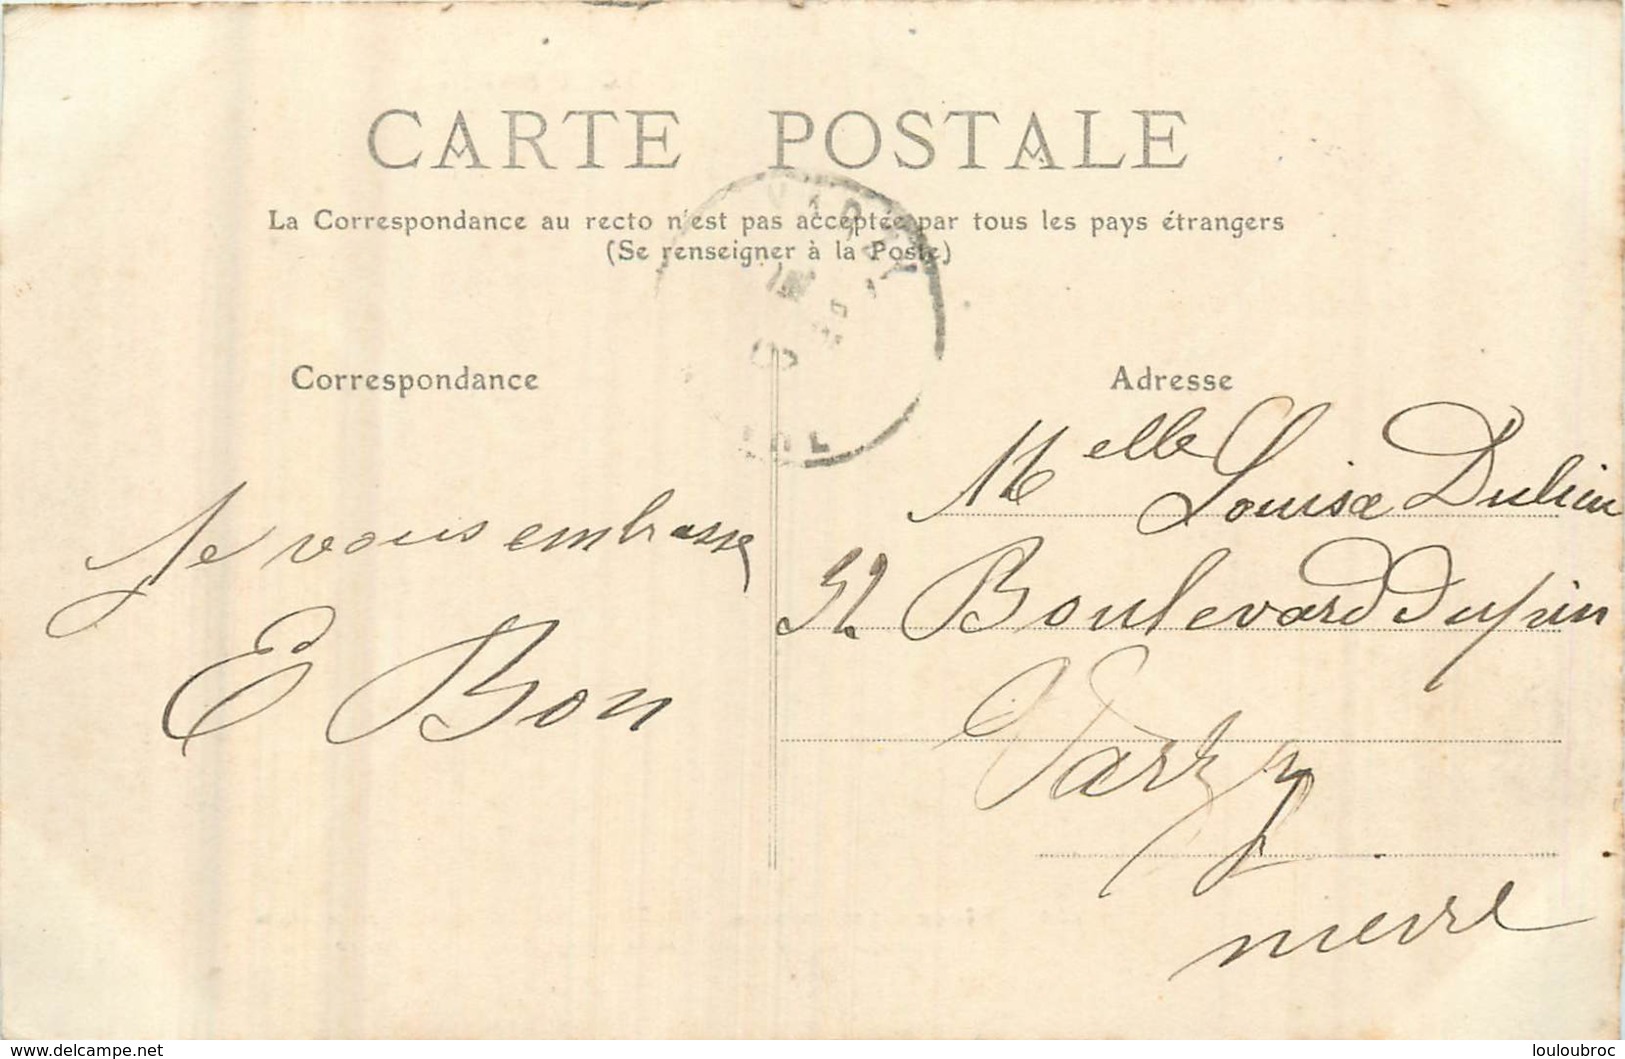 CARTE POSTALE
La Correspondance au recto n'est pas acceptée par tous les pays étrangers
(Se renseigner à la Poste)
Correspondance
Adresse
Je vous embrasse
E Bon
Melle Louise Dulien
52 Boulevard dupin
Varzy
nievre
delcampe.net
louloubroc